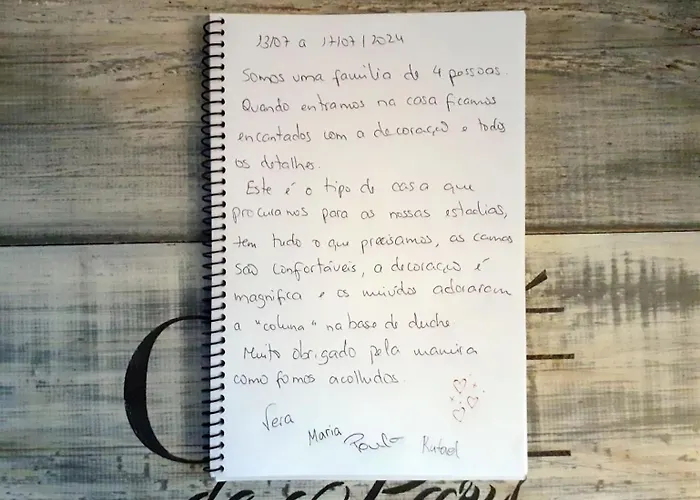 13/07 a 17/07/2024
Somos uma família de 4 pessoas.
Quando entramos na casa ficamos
encantados com a decoração e todos
os detalhes.
Este é o tipo de casa que
procuramos para as nossas estadias,
tem tudo o que precisamos, as camas
são confortáveis, a decoração é
magnífica e os miúdos adoraram
a "coluna" na base de duche
Muito obrigado pela maneira
como fomos acolhidos.
Vera
Maria
Paulo
Rafael